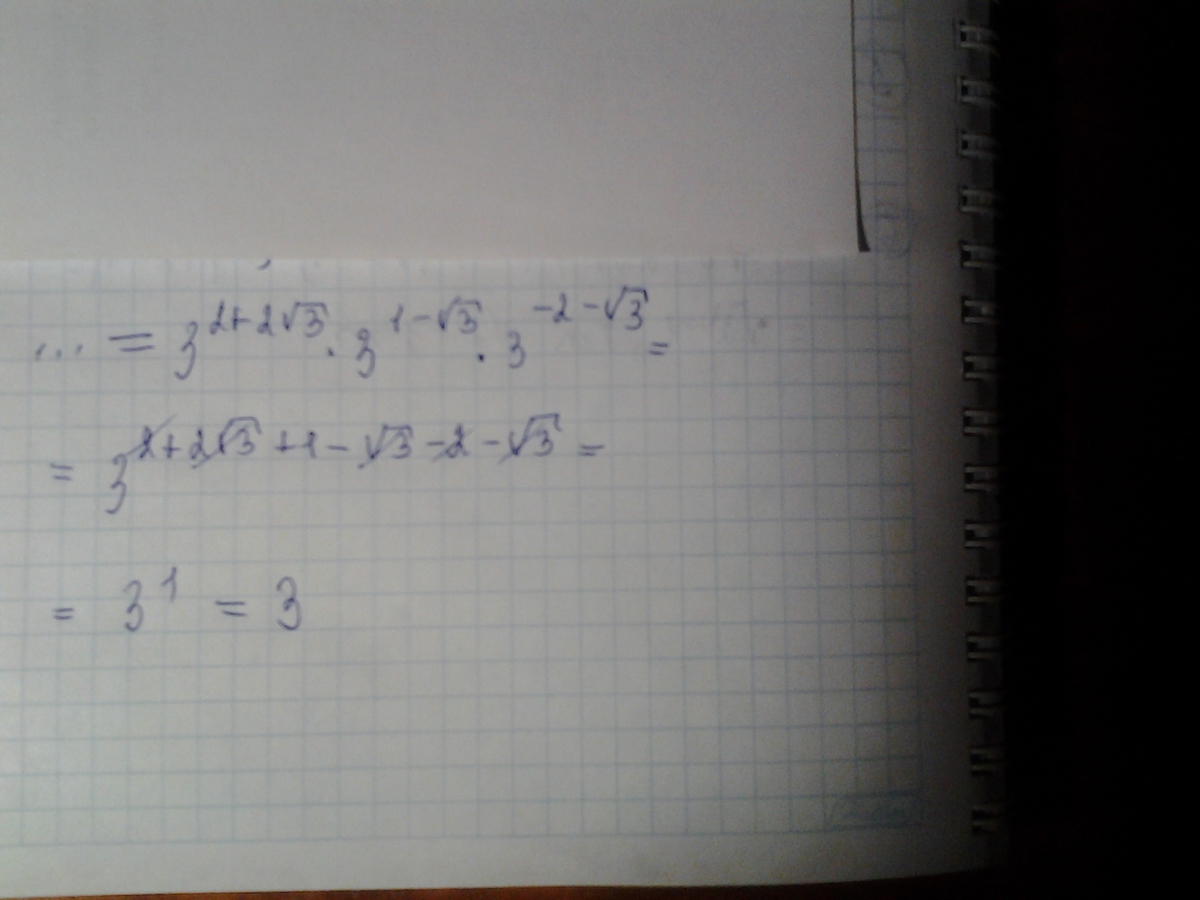 ... = 3^{2+2√3} · 3^{1-√3} · 3^{-2-√3} =
= 3^{2+2√3+1-√3-2-√3} =
= 3^1 = 3